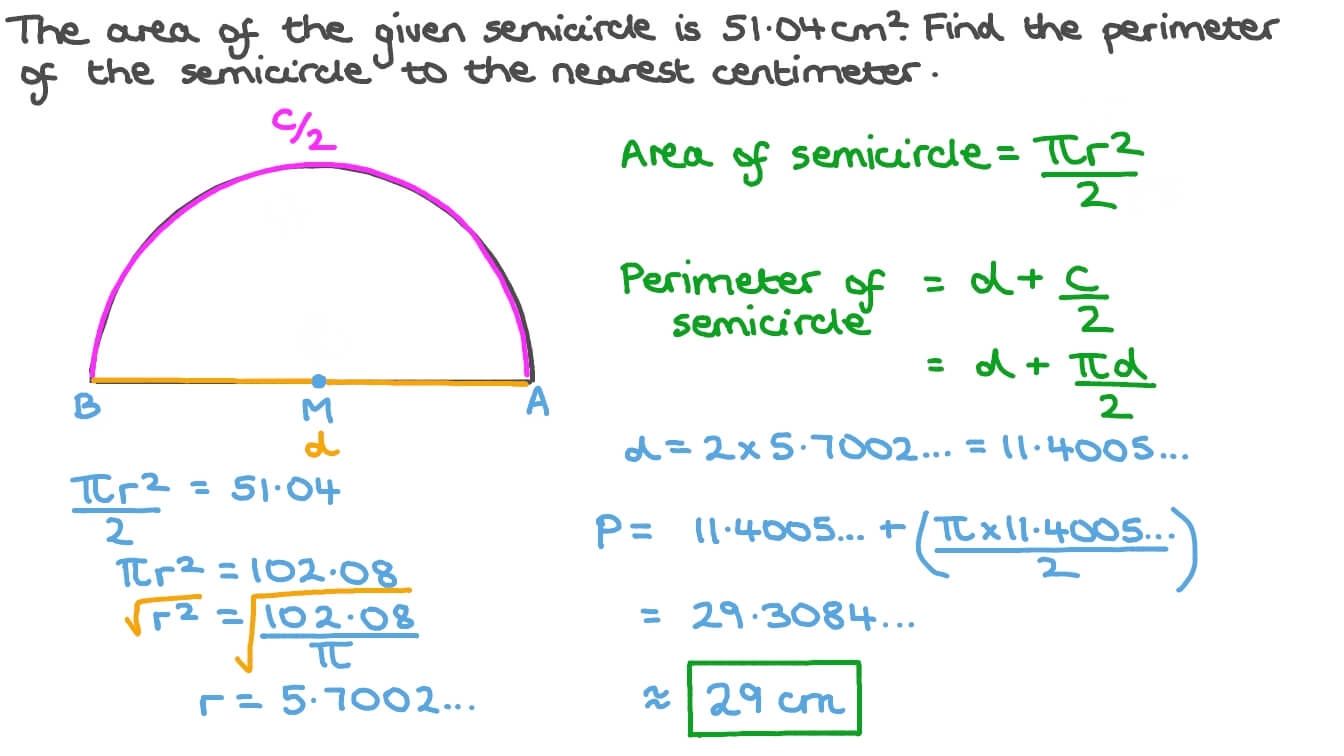 The area of the given semicircle is 51.04 cm². Find the perimeter
of the semicircle to the nearest centimeter.
C/2
B
M
A
d
πr²/2 = 51.04
πr² = 102.08
√r² = √(102.08/π)
r = 5.7002...
Area of semicircle = πr²/2
Perimeter of semicircle = d + C/2
= d + πd/2
d = 2 × 5.7002... = 11.4005...
P = 11.4005... + (π × 11.4005.../2)
= 29.3084...
≈ 29 cm